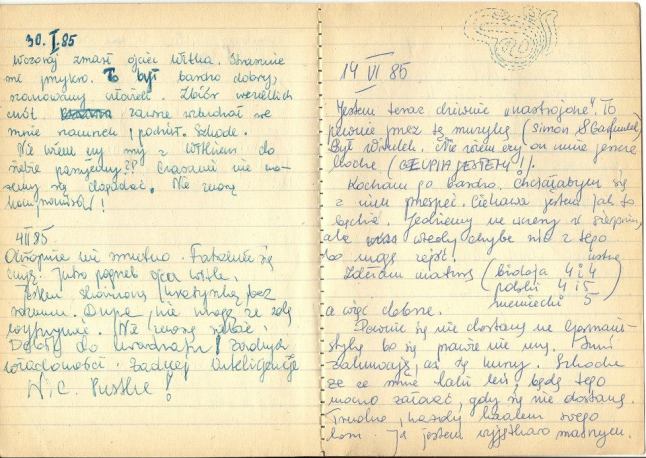 30.I.85
Wczoraj zmarł ojciec Witka. Strasznie
mi przykro. To był bardzo dobry,
szanowany człowiek. Zbiór wszelkich
cnót. zawsze wzbudzał we
mnie szacunek i podziw. Szkoda.
Nie wiem czy my z Witkiem do
siebie pasujemy?? Czasami nie mo-
żemy się dogadać. Nie znoszę
kompromisów!
4 II 85
Okropnie mi smutno. Fatalnie się
czuję. Jutro pogrzeb ojca Witka.
Jestem skończoną kretynką bez
rozumu. Dupa, nie mogę ze sobą
wytrzymać. Nie znoszę siebie!
Debil do kwadratu! Żadnych
wiadomości. Żadnej inteligencji
Nic. Pustka!
14 VI 85
Jestem teraz dziwnie "nastrojona". To
pewnie przez tę muzykę (Simon & Garfunkel)
Był Witek. Nie wiem czy on mnie jeszcze
kocha. (GŁUPIA JESTEM!).
Kocham go bardzo. Chciałabym się
z nim przespać. Ciekawa jestem jak to
będzie. Jedziemy na wczasy w sierpniu,
ale wtedy chyba nic z tego
bo mogę zajść.
Zdałam maturę (biologia 4 i 4
ustne
polski 4 i 5
niemiecki 5
a więc dobrze.
Pewnie się nie dostanę na Germani-
stykę bo się prawie nie uczę. Inni
zakuwają, aż się kurzy. Szkoda
że ze mnie taki leń, będę tego
mocno żałować, gdy się nie dostanę.
Trudno, każdy kowalem swego
losu. Ja jestem wyjątkowo marnym.